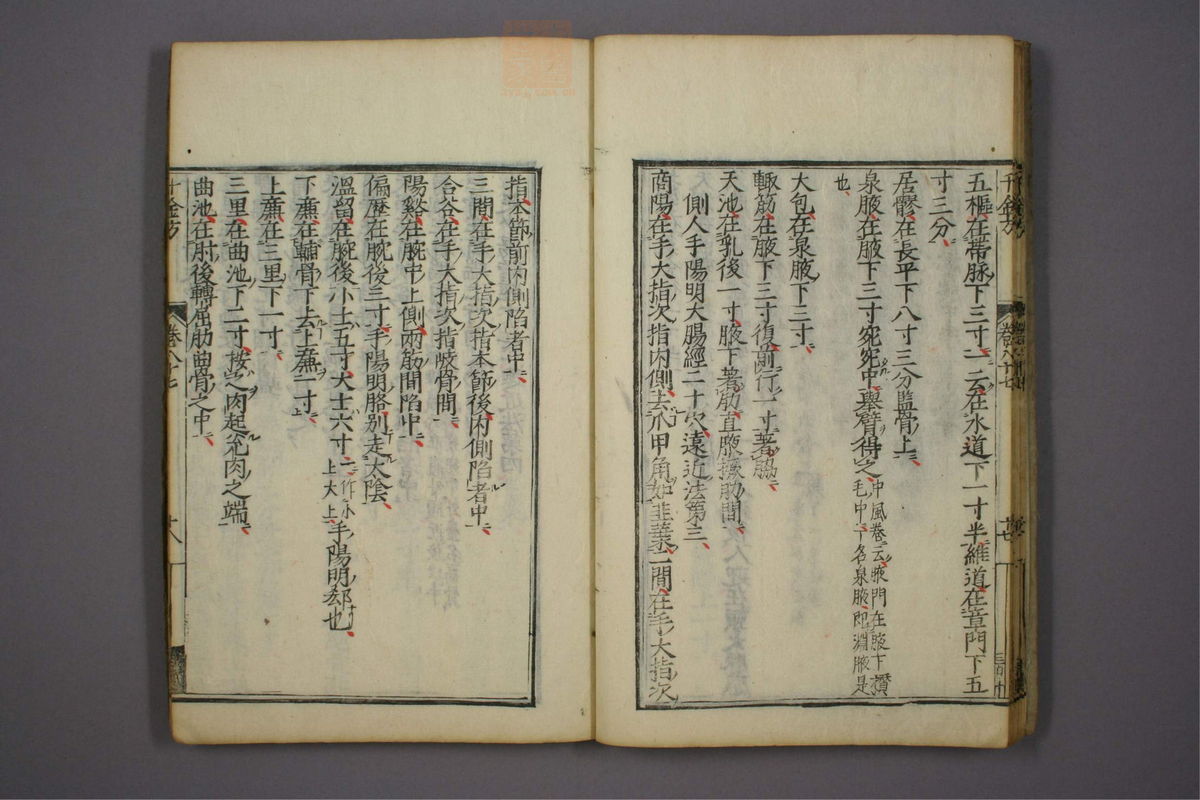 五樞在帶脉下三寸一云在水道下一寸半維道在章門下五
寸三分
居髎在長平下八寸三分監骨上
泉腋在腋下三寸宛宛中舉臂得之中風卷云腋門在腋下攢毛中一名泉腋即淵腋是
也
大包在泉腋下三寸
輒筋在腋下三寸復前行一寸著脇
天池在乳後一寸腋下著肋直腋撅肋間
側人手陽明大腸經二十穴遠近法第三
商陽在手大指次指內側去爪甲角如韭葉二間在手大指次
指本節前內側陷者中
三間在手大指次指本節後內側陷者中
合谷在手大指次指岐骨間
陽谿在腕中上側兩筋間陷中
偏歷在腕後三寸手陽明胳別走太陰
溫留在腕後小士五寸大士六寸一作小上大上手陽明郄也
下廉在輔骨下去上廉一寸
上廉在三里下一寸
三里在曲池下二寸按之肉起兌肉之端
曲池在肘後轉屈肘曲骨之中
千金方
卷八十七
十八